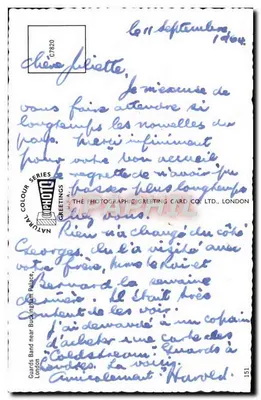 le 11 septembre,
1964.
C7820
Chère Juliette,
Je m'excuse de
vous faire attendre si
longtemps les nouvelles du
pays. Merci infiniment
pour votre bon accueil
je regrette de n'avoir pu
passer plus longtemps
chez vous.
Rien n'a changé du côté
Georges, on l'a visité avec
votre frère,
Bernard la semaine
dernière. Il était très
content de les voir.
J'ai demandé à un copain
d'acheter une carte des
"Coldstream" Guards à
Londres. La voici.
Amicalement Harold.
NATURAL COLOUR SERIES
PHOTO
GREETINGS
THE PHOTOGRAPHIC GREETING CARD CO., LTD., LONDON
Guards Band near Buckingham Palace,
London
151